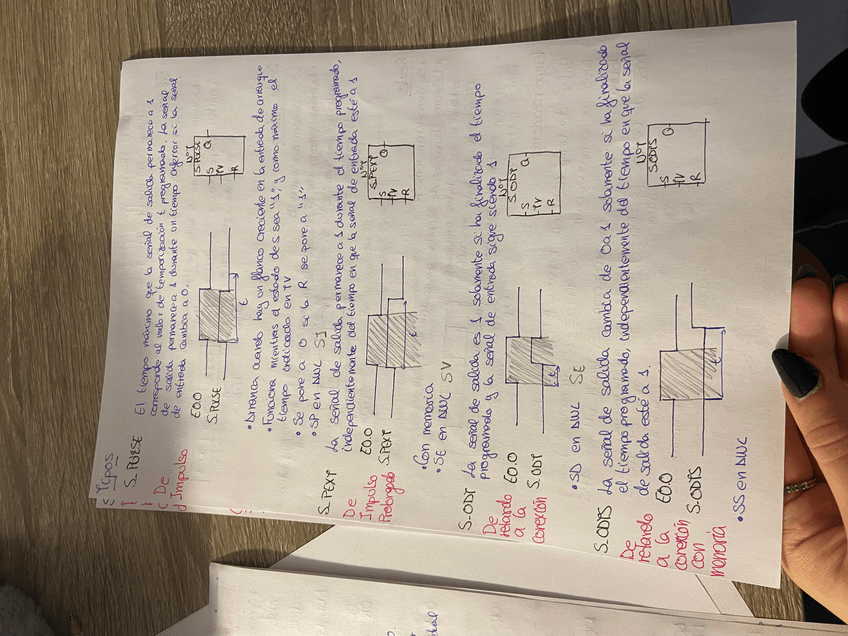 Tipos
S_PULSE El tiempo máximo que la señal de salida permanece a 1
corresponde al valor de temporización t programado. La señal
de salida permanece a 1 durante un tiempo inferior si la señal
de entrada cambia a 0.
De
Impulso
E0.0
S_PULSE
t
NºT
S_PULSE
S
TV
R
Q
• Arranca cuando hay un flanco creciente en la entrada de arranque
• Funciona mientras el estado de s sea "1", y como máximo el
tiempo indicado en TV
• Se pone a 0 si la R se pone a "1"
• SP en AWL SI
S_PEXT La señal de salida permanece a 1 durante el tiempo programado,
independientemente del tiempo en que la señal de entrada esté a 1
De
Impulso
Prolongado
E0.0
S_PEXT
t
NºT
S_PEXT
S
TV
R
Q
• Con memoria
• SE en AWL SV
S_ODT La señal de salida es 1 solamente si ha finalizado el tiempo
programado y la señal de entrada sigue siendo 1
De
retardo
a la
conexión
E0.0
S_ODT
t
NºT
S_ODT
S
TV
R
Q
• SD en AWL SE
S_ODTS La señal de salida cambia de 0 a 1 solamente si ha finalizado
el tiempo programado, independientemente del tiempo en que la señal
de salida esté a 1.
De
retardo
a la
conexión
con
memoria
E0.0
S_ODTS
t
NºT
S_ODTS
S
TV
R
Q
• SS en AWL